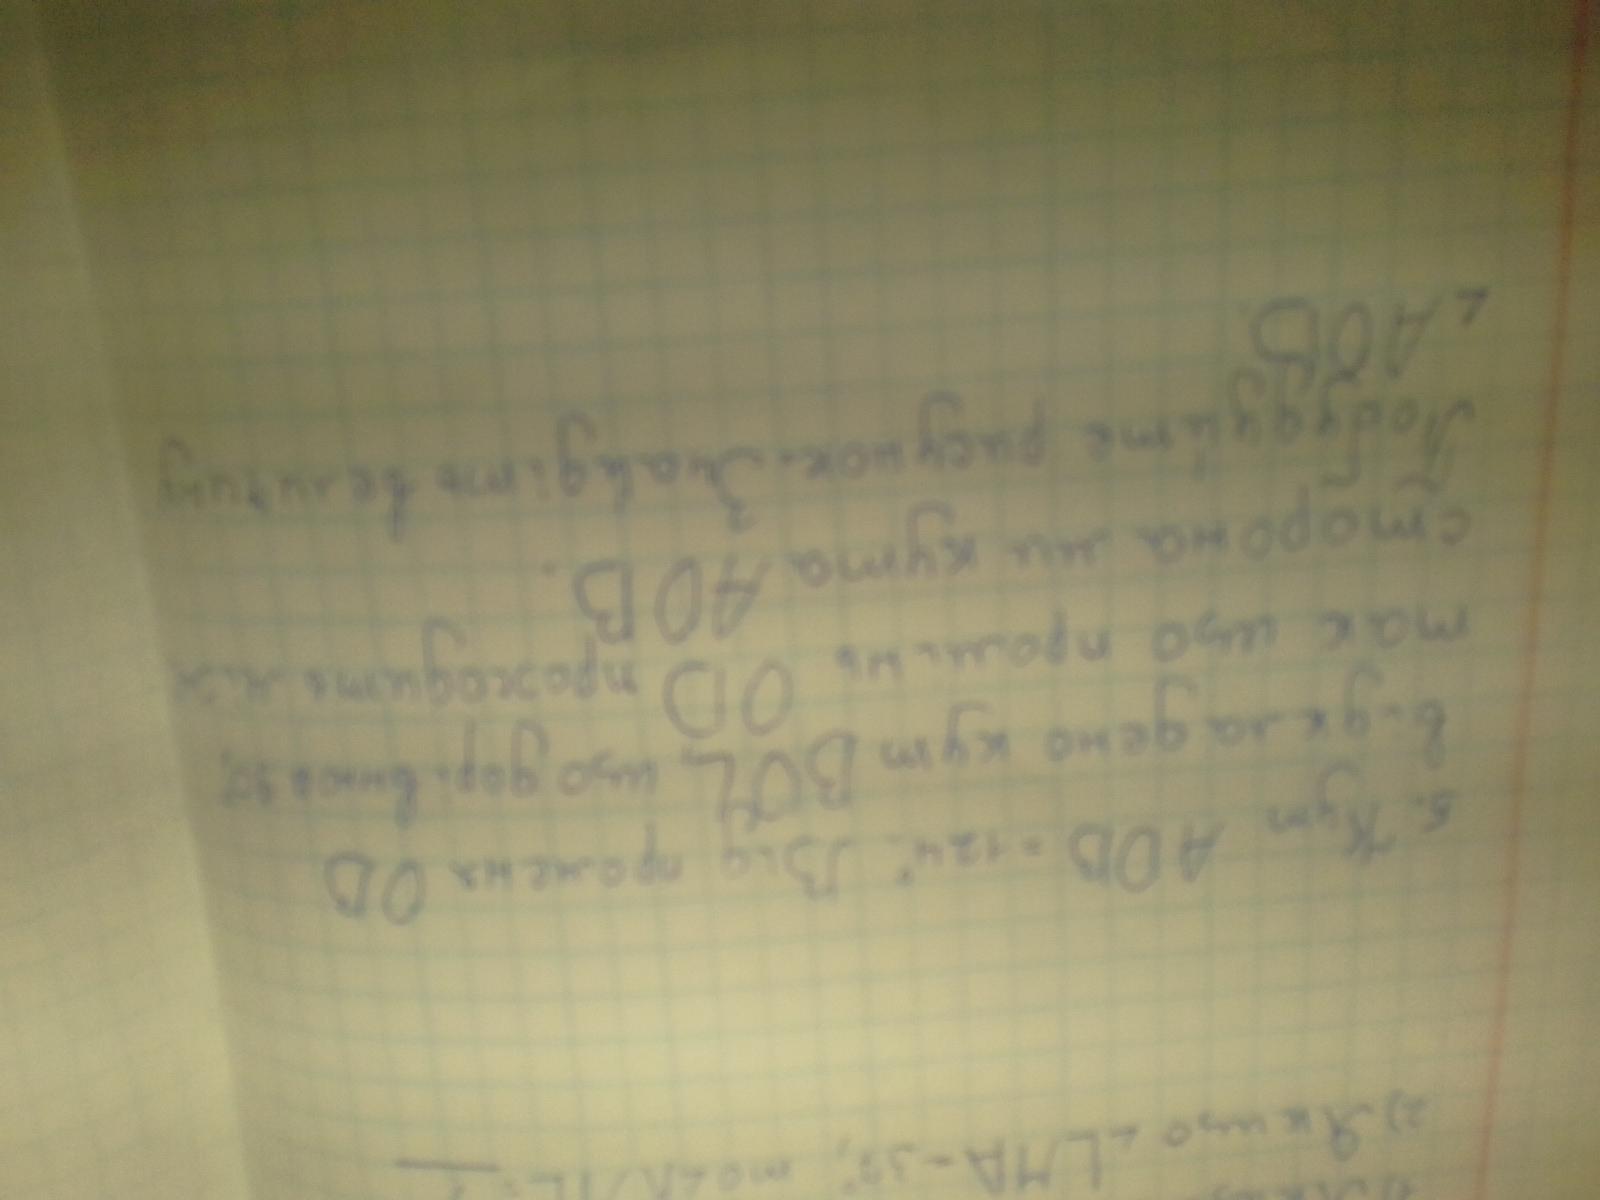 2) Якщо ∠LMA-39°, то
5. Кут AOB =124°. Від променя OB
відкладено кут BOL, що дорівнює
так що промінь OD проходить між
сторонами кута AOB.
Побудуйте рисунок. Знайдіть величину
∠AOB.